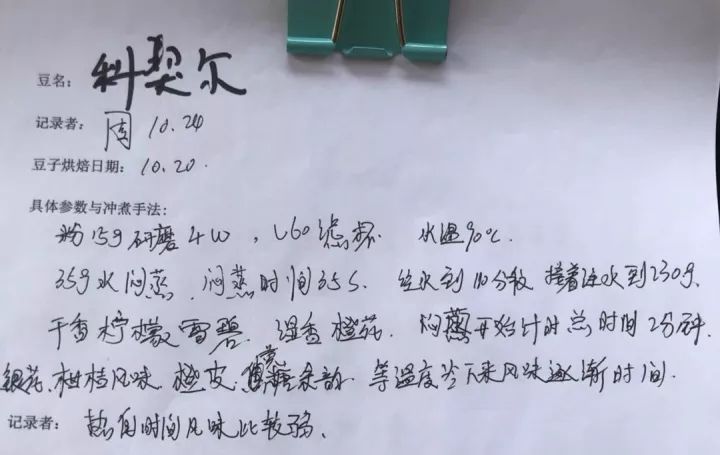 豆名: 科契尔
记录者: 周 10.24
豆子烘焙日期: 10.20.
具体参数与冲煮手法:
粉15g研磨4W, V60滤杯 水温90℃.
35g水闷蒸, 闷蒸时间35s. 注水到110分段 接着注水到230g.
干香柠檬雪碧. 湿香橙花. 闷蒸开始计时总时间2分钟.
银花. 柑桔风味. 橙皮. 糖余韵. 等温度冷下来风味逐渐时间.
记录者: 热的时间风味比较弱.